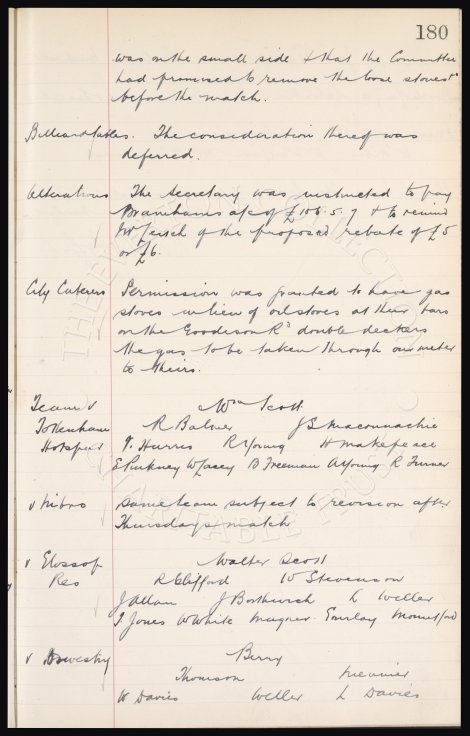 180
was on the small side & that the Committee
had promised to remove the loose stones
before the match.
Billiard tables. The consideration thereof was
deferred.
Alterations The Secretary was instructed to pay
a/c of £106.5.7 & to remind
Mr of the proposed rebate of £5
or £6.
City Caterers Permission was granted to have gas
stoves in lieu of oil stoves at their bars
on the Goodison Rd double deckers
the gas to be taken through our meter
to theirs.
Team v Wm Scott
Tottenham R Balmer J S Maconnachie
Hotspur V. Harris R Young H Makepeace
E Pinkney W Lacey B Freeman A Young R Turner
v Hibs same team subject to revision after
Thursdays match
v Glossop Walter Scott
Res R Clifford W Stevenson
J Allan J Borthwick L Weller
T Jones W White Magner Gourlay Mountford
v Oswestry Berry
Thomson Meunier
W Davies Weller L Davies